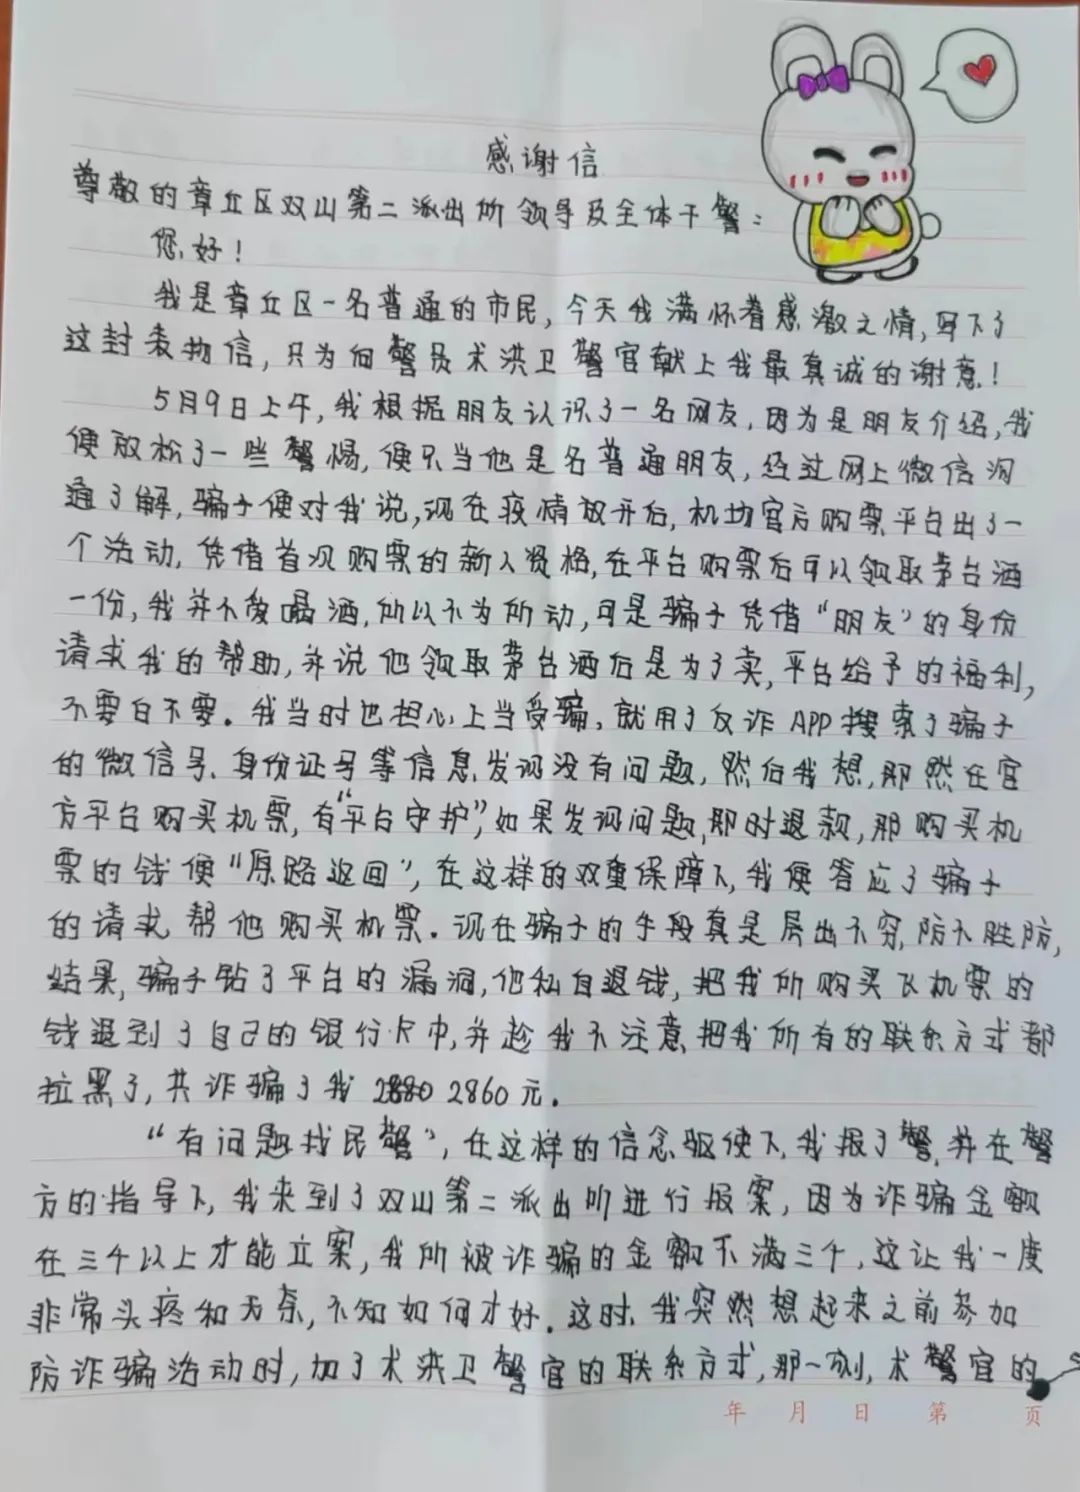 感谢信
尊敬的章丘区双山第二派出所领导及全体干警：
您好！
我是章丘区一名普通的市民，今天我满怀着感激之情，写下了
这封表扬信，只为向警员术洪卫警官献上我最真诚的谢意！
5月9日上午，我根据朋友认识了一名网友，因为是朋友介绍，我
便放松了一些警惕，便只当他是名普通朋友，经过网上微信沟
通了解，骗子便对我说，现在疫情放开后，机场官方购票平台出了一
个活动，凭借首次购票的新人资格，在平台购票后可以领取茅台酒
一份，我并不爱喝酒，所以不为所动，可是骗子凭借“朋友”的身份
请求我的帮助，并说他领取茅台酒后是为了卖，平台给予的福利，
不要白不要。我当时也担心上当受骗，就用了反诈APP搜索了骗子
的微信号、身份证号等信息，发现没有问题，然后我想，那然在官
方平台购买机票，有“平台守护”，如果发现问题，即时退款，那购买机
票的钱便“原路返回”，在这样的双重保障下，我便答应了骗子
的请求，帮他购买机票。现在骗子的手段真是层出不穷，防不胜防，
结果，骗子钻了平台的漏洞，他私自退钱，把我所购买飞机票的
钱退到了自己的银行卡中，并趁我不注意把我所有的联系方式都
拉黑了，共诈骗了我2880 2860元。
“有问题找民警”，在这样的信念驱使下，我报了警，并在警
方的指导下，我来到了双山第二派出所进行报案，因为诈骗金额
在三个以上才能立案，我所被诈骗的金额不满三个，这让我一度
非常头疼和无奈，不知如何才好。这时，我突然想起来之前参加
防诈骗活动时，加了术洪卫警官的联系方式，那一刻，术警官的
年 月 日 第 页